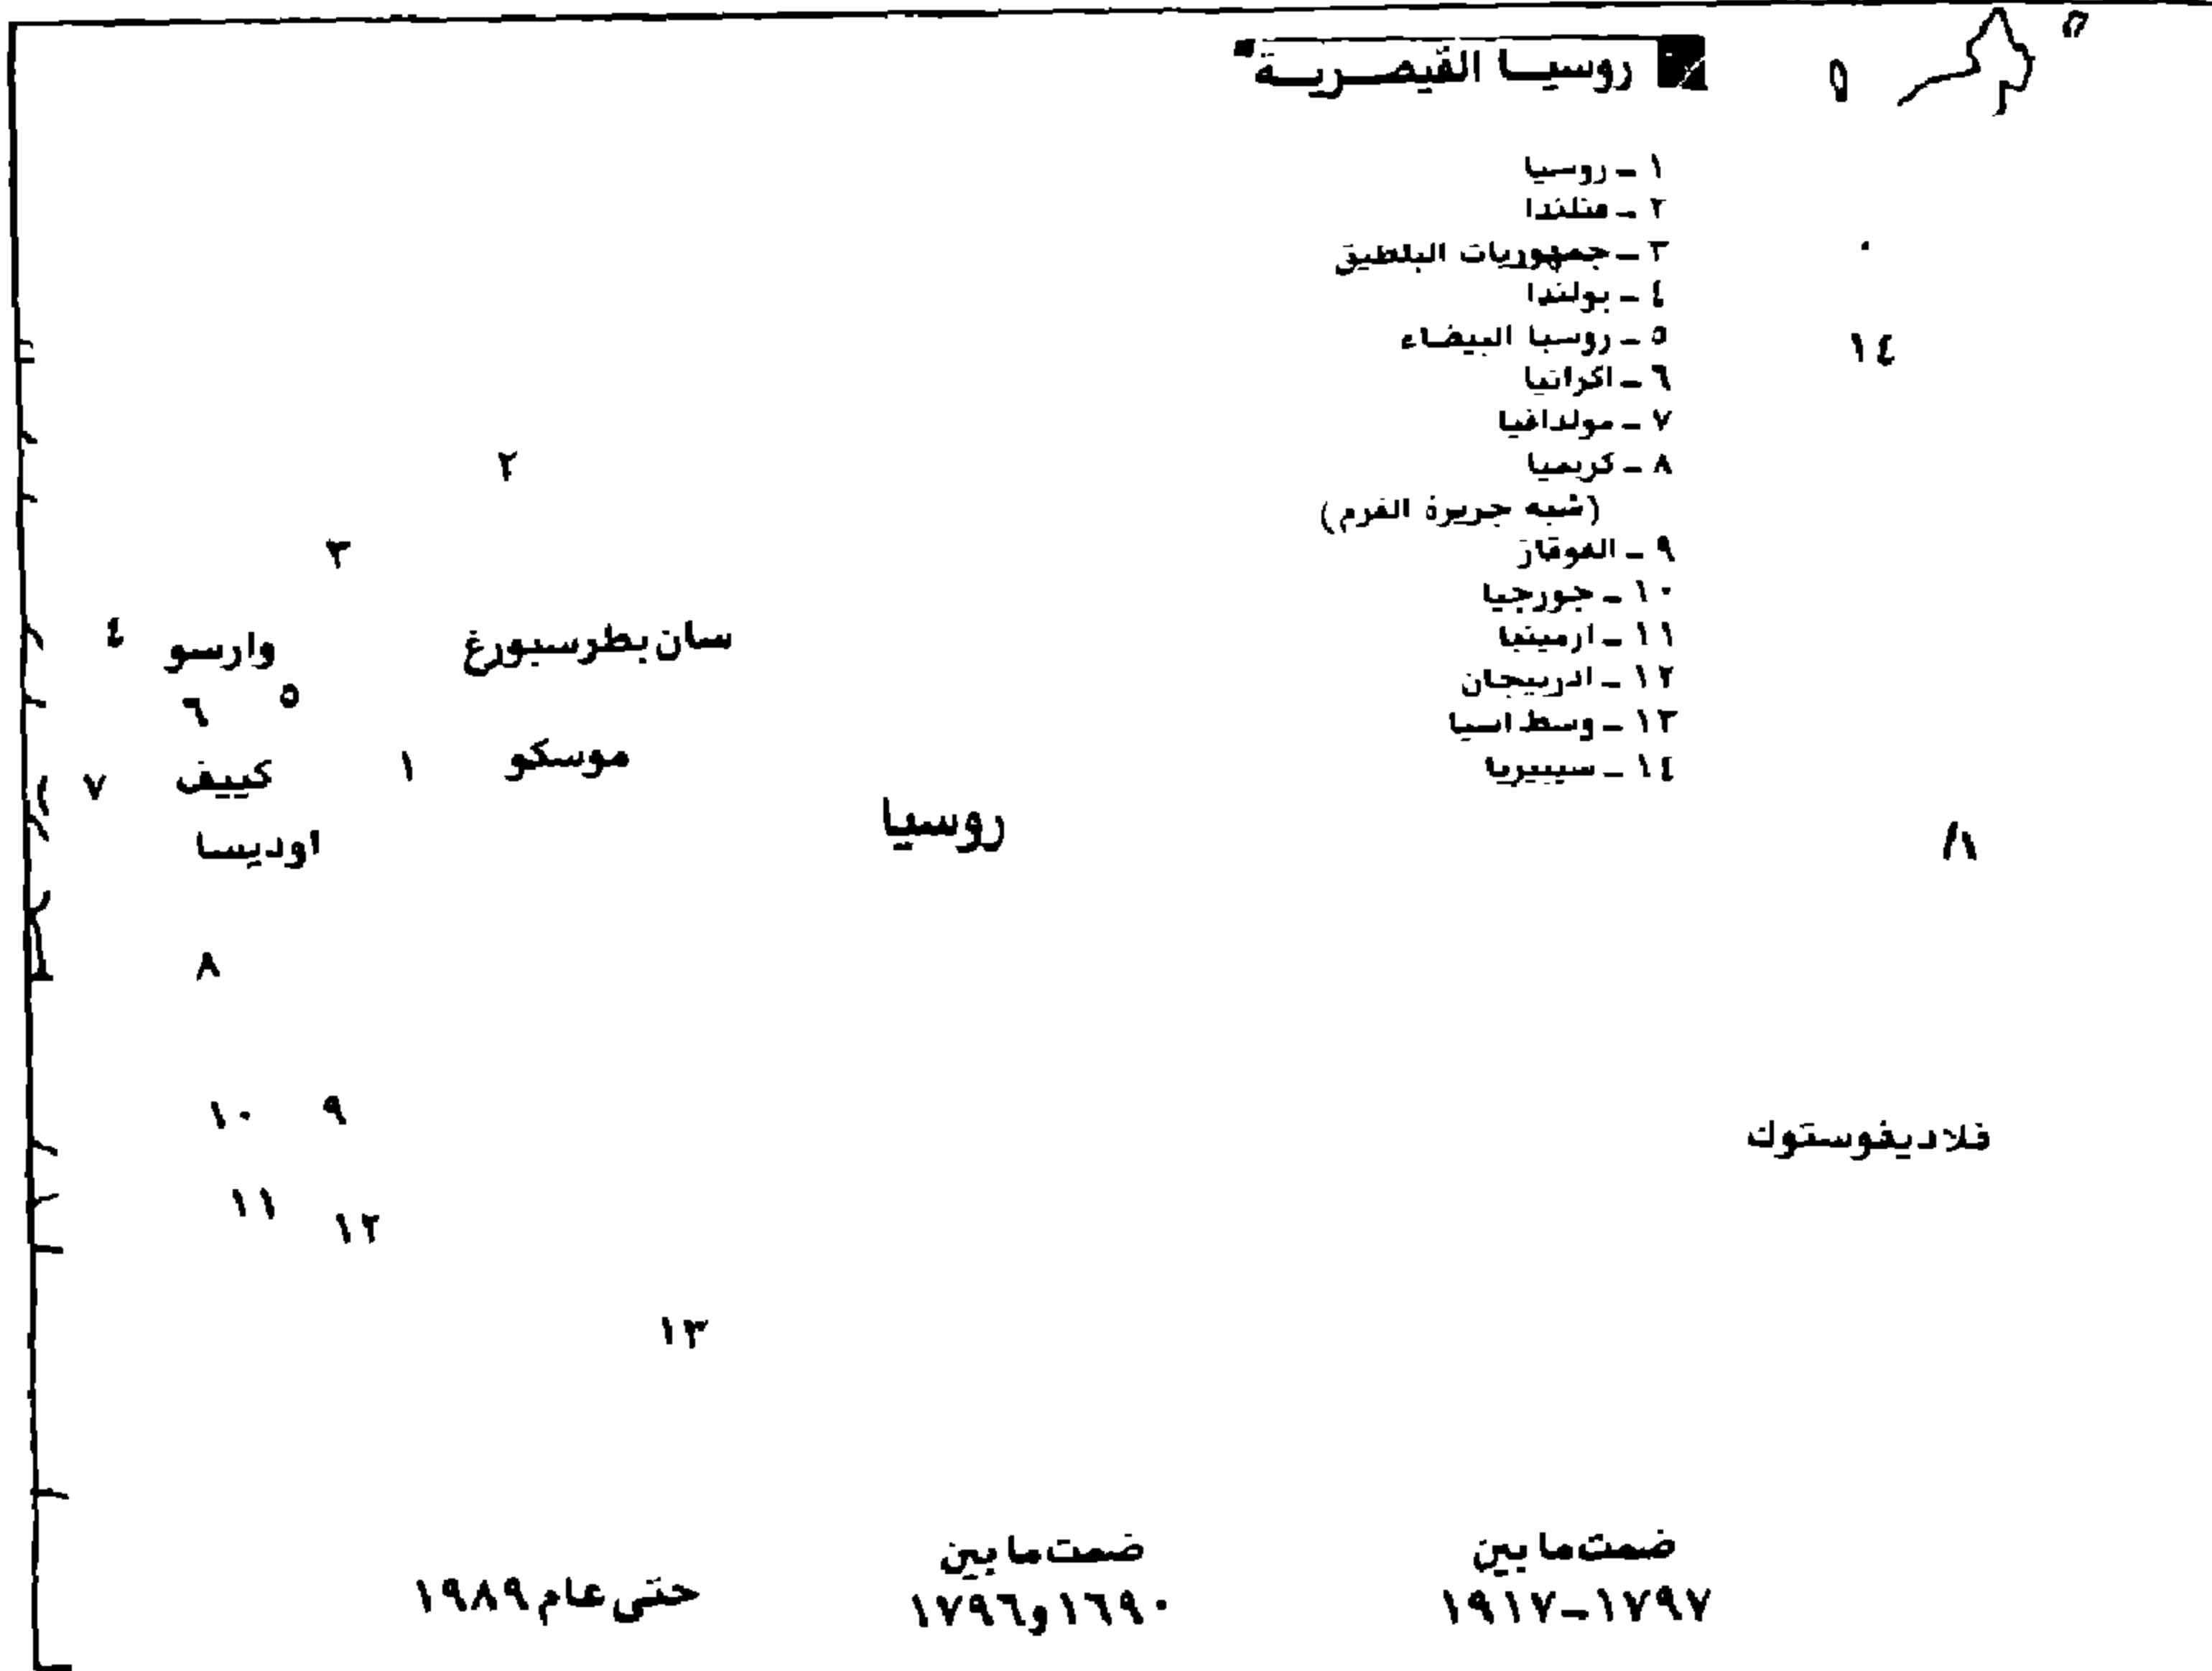 روسيا القيصرية
١ - روسيا
٢ - فنلندا
٣ - جمهوريات البلطيق
٤ - بولندا
٥ - روسيا البيضاء
٦ - اكرانيا
٧ - مولدافيا
٨ - كريميا
(شبه جزيرة القرم)
٩ - القوقاز
١٠ - جورجيا
١١ - ارمينيا
١٢ - اذربيجان
١٣ - وسط اسيا
١٤ - سيبيريا
١٤
٢
٣
٤
وارسو
سان بطرسبورغ
٥
٦
موسكو
١
كييف
٧
روسيا
اوديسا
٨
٩
١٠
فلاديفوستوك
١١
١٢
١٣
ضمت ما بين
١٧٩٧-١٩١٧
ضمت ما بين
١٦٩٠ و١٧٩٦
حتى عام ١٩٨٩